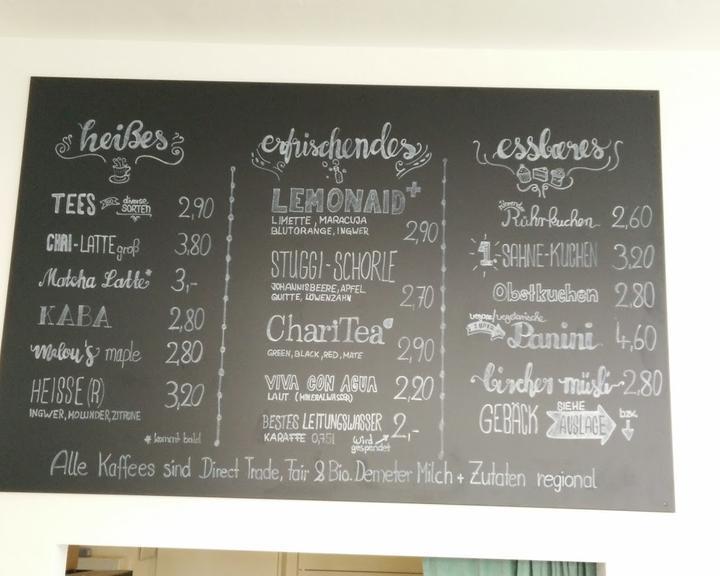 heißes
TEES diverse SORTEN 2,90
CHAI-LATTE groß 3,80
Matcha Latte* 3,-
KABA 2,80
Malou's maple 2,80
HEISSE(R) 3,20
INGWER, HOLUNDER, ZITRONE
* kommt bald
erfrischendes
LEMONAID+
LIMETTE, MARACUJA
BLUTORANGE, INGWER 2,90
STUGGI-SCHORLE
JOHANNISBEERE, APFEL
QUITTE, LÖWENZAHN 2,70
ChariTea
GREEN, BLACK, RED, MATE 2,90
VIVA CON AGUA 2,20
LAUT (MINERALWASSER)
BESTES LEITUNGSWASSER 2,-
KARAFFE 0,75l wird
gespendet
essbares
Rührkuchen 2,60
1. SAHNE-KUCHEN 3,20
Obstkuchen 2,80
vegane/vegetarische
Panini 4,60
bircher müsli 2,80
GEBÄCK SIEHE AUSLAGE bzw.
Alle Kaffees sind Direct Trade, Fair & Bio. Demeter Milch + Zutaten regional